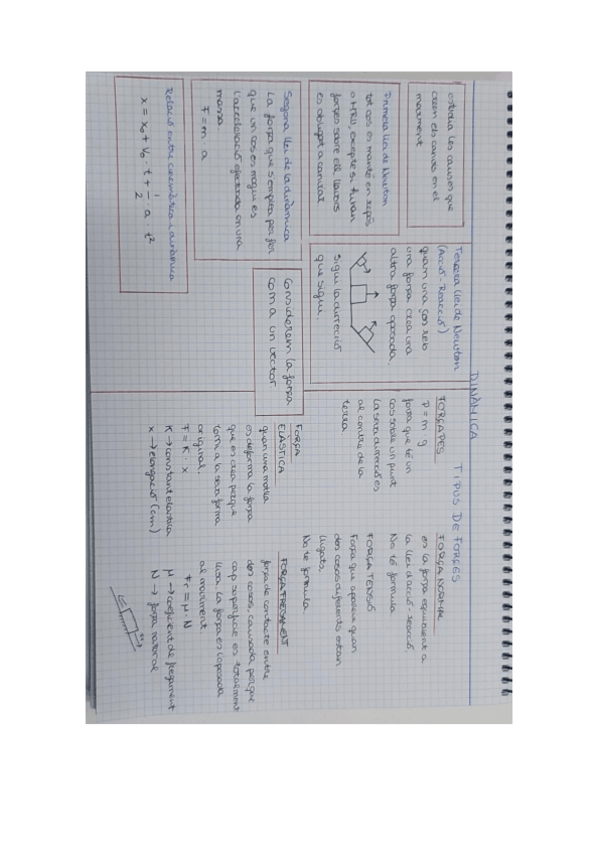 DINÀMICA
estudia les causes que
creen els canvis en el
moviment
Primera llei de Newton
tot cos es manté en repòs
o MRU, excepte si actuen
forces sobre ell, llavors
es obligat a canviar
Segona llei de la dinàmica
La força que s'empra per fer
que un cos es mogui es
l'acceleració efectuada en una
massa
F = m · a
Relació entre cinemàtica i dinàmica
x = x₀ + V₀ · t + 1/2 · a · t²
Tercera llei de Newton
(Acció - Reacció)
quan un cos reb
una força crea una
altra força oposada.
sigui la direcció
que sigui.
Considerem la força
com a un vector
TIPUS DE FORCES
FORÇA PES
P = m · g
força que té un
cos sobre un punt
la seva direcció es
al centre de la
terra
FORÇA
ELÀSTICA
quan una molla
es deforma la força
que es crea perquè
torni a la seva forma
original.
F = K · x
K → constant elàstica
x → elongació (cm)
FORÇA NORMAL
es la força equivalent a
la llei d'acció-reacció.
No té fórmula
FORÇA TENSIÓ
Força que apareix quan
dos cossos diferents estan
lligats.
No té fórmula
FORÇA FREGAMENT
força de contacte entre
dos cossos, causada perquè
cap superfície es totalment
llisa. La força es oposada
al moviment
Fr = μ · N
μ → coeficient de fregament
N → força normal